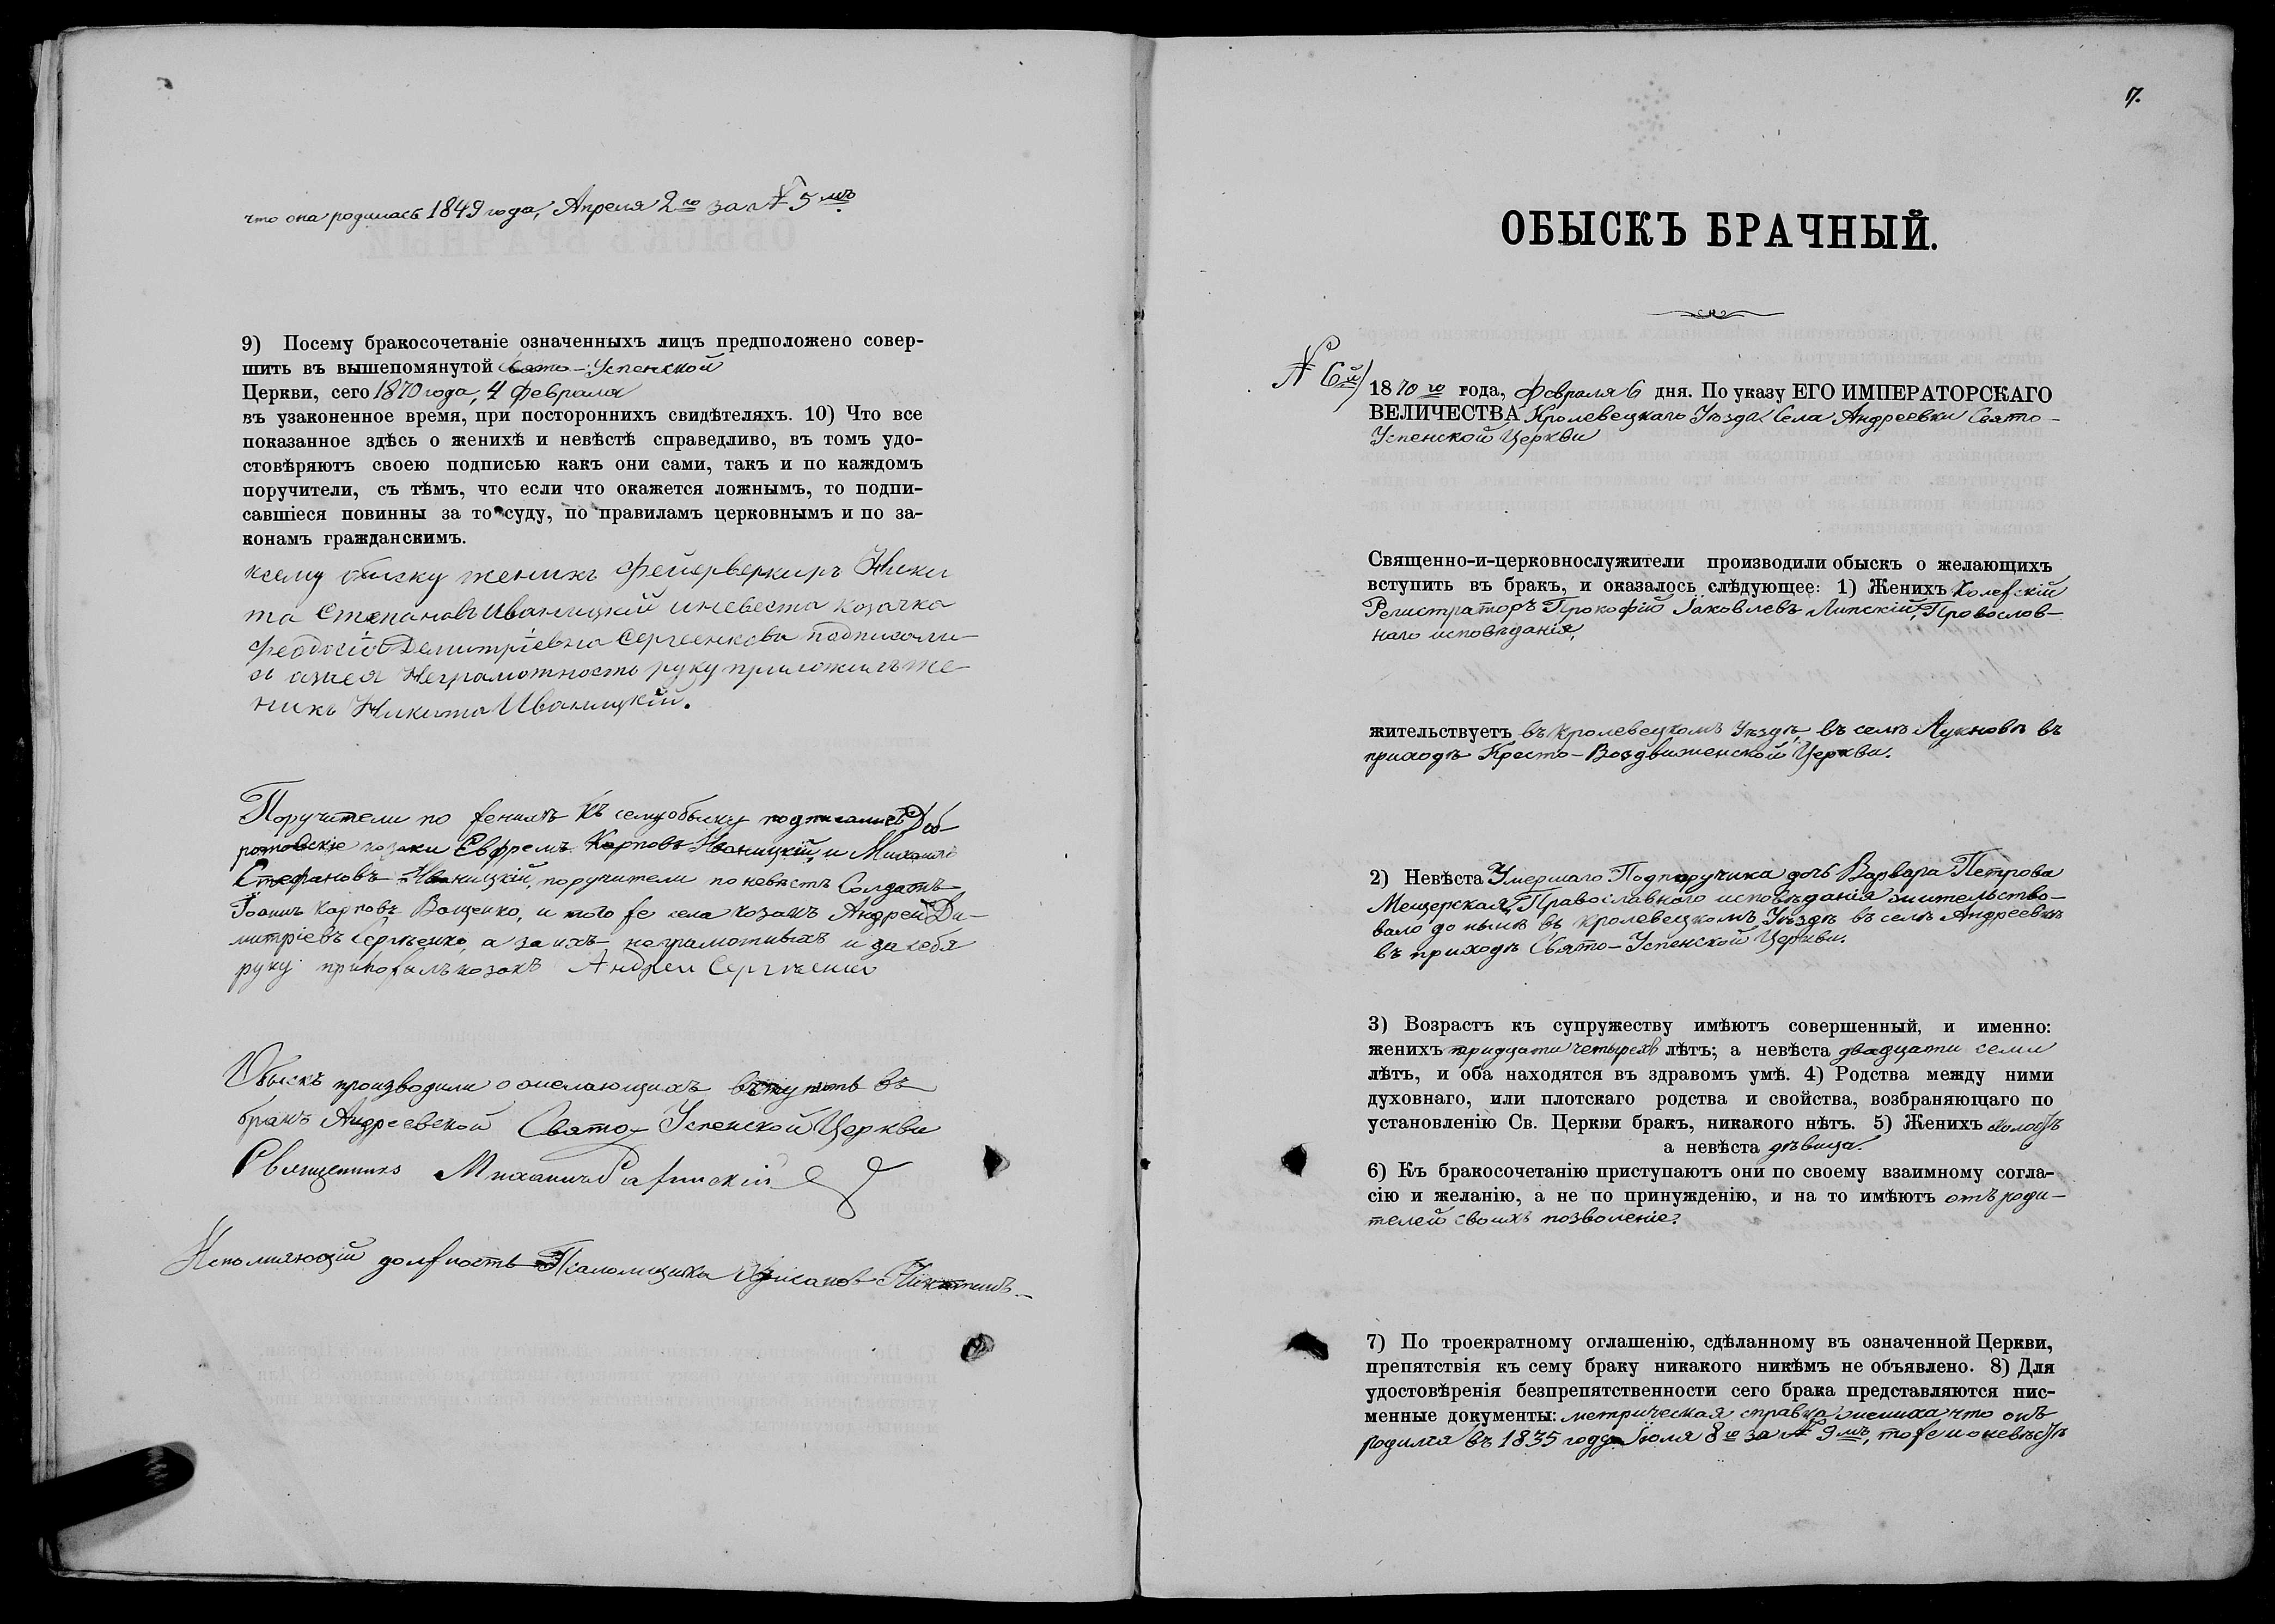 что она родилась 1849 года, Апреля 2го за № 5мъ.
9) Посему бракосочетаніе означенныхъ лицъ предположено совер-
шить въ вышепомянутой Свято-Успенской
Церкви, сего 1870 года, 4 Февраля
въ узаконенное время, при постороннихъ свидѣтеляхъ. 10) Что все
показанное здѣсь о женихѣ и невѣстѣ справедливо, въ томъ удо-
стовѣряютъ своею подписью какъ они сами, такъ и по каждомъ
поручители, съ тѣмъ, что если что окажется ложнымъ, то подпи-
савшіеся повинны за то суду, по правиламъ церковнымъ и по за-
конамъ гражданскимъ.
ксему обыску женихъ Фейерверкиръ Ники
та Степановъ Иваницкій иневеста козачка
Феодосія Демитріевна Сергеенкова подписали-
сь азанея Неграмотность руку приложилъ же-
нихъ Никита Иваницкій.
Поручители по женихѣ къ сему обыску подписались
козаки Евфремъ Карповъ Иваницкій, и Михаилъ
Стефановъ Иваницкій, поручители по невѣстѣ Солдатъ
Іоаннъ Карповъ Ващенко, и того же села козакъ Андрей Ди-
митріевъ Сергѣенко, а за ихъ неграмотныхъ и за себя
руку приложилъ козакъ Андрей Сергѣенко
Обыскъ производили о желающихъ вступить въ
бракъ Андреевской Свято-Успенской Церкви
Священникъ Михаилъ
Исполняющій должность Псаломщика Никитинъ
7.
ОБЫСКЪ БРАЧНЫЙ.
№ 6й) 1870го года, Февраля 6 дня. По указу ЕГО ИМПЕРАТОРСКАГО
ВЕЛИЧЕСТВА Кролевецкаго Уѣзда Села Андреевки Свято-
Успенской Церкви
Священно-и-церковнослужители производили обыскъ о желающихъ
вступить въ бракъ, и оказалось слѣдующее: 1) Женихъ Колежскій
Регистраторъ Прокофій Іаковлевъ Липскій, Провослов-
наго исповѣданія,
жительствуетъ въ Кролевецкомъ Уѣздѣ, въ селѣ Лукновѣ въ
приходѣ Кресто-Воздвиженской Церкви.
2) Невѣста Умершаго Подпоручика дочь Варвара Петрова
Мещерская, Православнаго исповѣданія жительство-
вало до нынѣ въ Кролевецкомъ Уѣздѣ въ селѣ Андреевкѣ
въ приходѣ Свято-Успенской Церкви.
3) Возрастъ къ супружеству имѣютъ совершенный, и именно:
женихъ тридцати четырехъ лѣтъ; а невѣста двадцати семи
лѣтъ, и оба находятся въ здравомъ умѣ. 4) Родства между ними
духовнаго, или плотскаго родства и свойства, возбраняющаго по
установленію Св. Церкви бракъ, никакого нѣтъ. 5) Женихъ холостъ
а невѣста дѣвица.
6) Къ бракосочетанію приступаютъ они по своему взаимному согла-
сію и желанію, а не по принужденію, и на то имѣютъ отъ роди-
телей своихъ позволеніе.
7) По троекратному оглашенію, сдѣланному въ означенной Церкви,
препятствія къ сему браку никакого никѣмъ не объявлено. 8) Для
удостовѣренія безпрепятственности сего брака представляются пис-
менные документы: метрическая справка жениха что онъ
родился въ 1835 году Іюля 8го за № 9мъ, тоже и о невѣстѣ